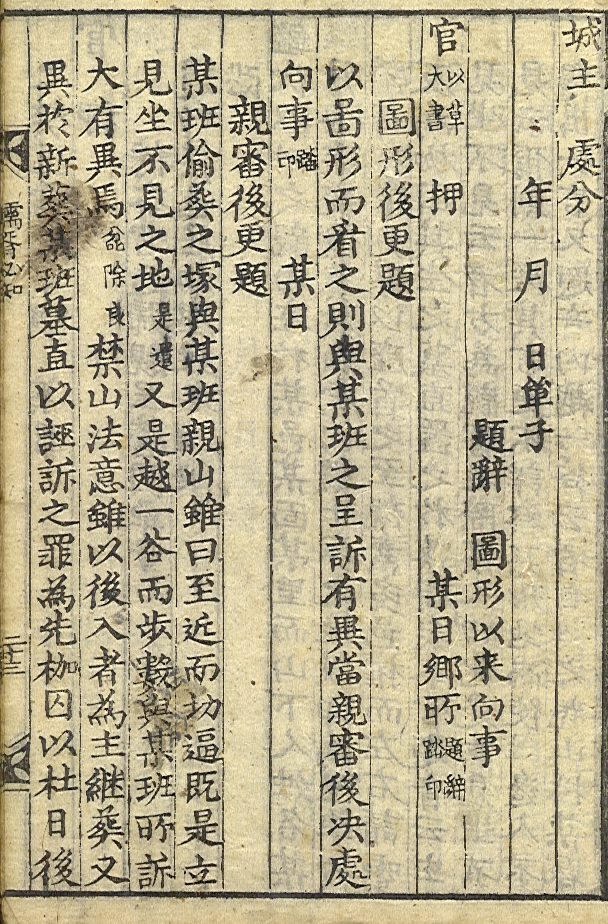 城主 處分
年 月 日単子
題辭 圖形以来向事
官 以草大書 押 某日鄉所 題辭踏印
圖形後更題
以啚形而看之則與某班之呈訴有異當親審後决處
向事 踏印 某日
親審後更題
某班偷葬之塚與某班親山雖曰至近而切逼既是立
見坐不見之地 是遣 又是越一谷而步數與某班所訴
大有異焉 兺除良 禁山法意雖以後入者為主継葬又
異於新葬某班墓直以誣訴之罪為先枷囚以杜日後
儒胥必知
二十三